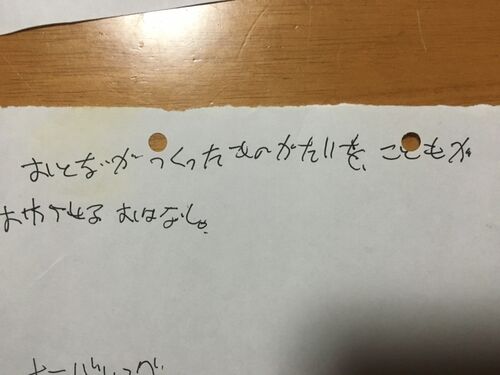 おとながつくったものがたりを、こどもが
おわらせるおはなし。